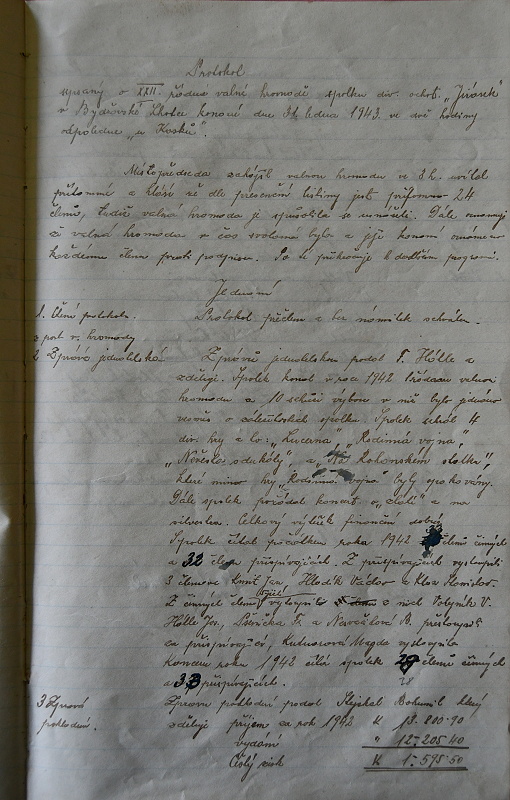 Protokol
sepsaný o XXII. řádné valné hromadě spolku div. ochot. „Jirásek"
v Bydžovské Lhotce konané dne 31. ledna 1943 ve dvě hodiny
odpoledne „u Kosků".
Místopředseda zahájil valnou hromadu ve 3 h. uvítal
přítomné a hlásí že dle presenční listiny jest přítomno 24
členů, tudíž valná hromada je způsobilá se usnášeti. Dále oznamuje
že valná hromada v čas svolána byla a její konání oznámeno
každému členu proti podpisu. Po té přikročuje k dalšímu programu.
Jednání
1. Čtení protokolu Protokol přečten a bez námitek schválen.
z posl. v. hromady
2 Zpráva jednatelská Zprávu jednatelskou podal F. Hölle a
sděluje. Spolek konal v roce 1942 1 řádnou valnou
hromadu a 10 schůzí výboru v níž bylo jednáno
o záležitostech spolku. Spolek sehrál 4
div. hry a to: „Lucerna", „Rodinná vojna",
„Nevěsta od kůly", a „Na Rohanském statku",
které mimo hry „Rodinná vojna" byly opakovány.
Dále spolek pořádal koncert o „zlaté" a na
silvestra. Celkový výtěžek finanční dobrý
Spolek čítal počátkem roku 1942 členů činných
a 32 členů přispívajících. Z přispívajících vystoupili
3 členové Kmit Jan, Hladík Václav a Klos Stanislav.
Z činných členů vystoupili z nich Volejník V.
Hölle Jos., Pšenička F. a Nevečeřalová B. přestoupili
za přispívající, Kutnarová Magda vystoupila
Koncem roku 1942 čítá spolek 29 členů činných
a 33 přispívajících.
3 Zpráva Zprávu pokladní podal Stejskal Bohumil který
pokladní. sděluje příjem za rok 1942 K 13.800·90
vydání „ 12·205·40
Čistý zisk K 1·595·50